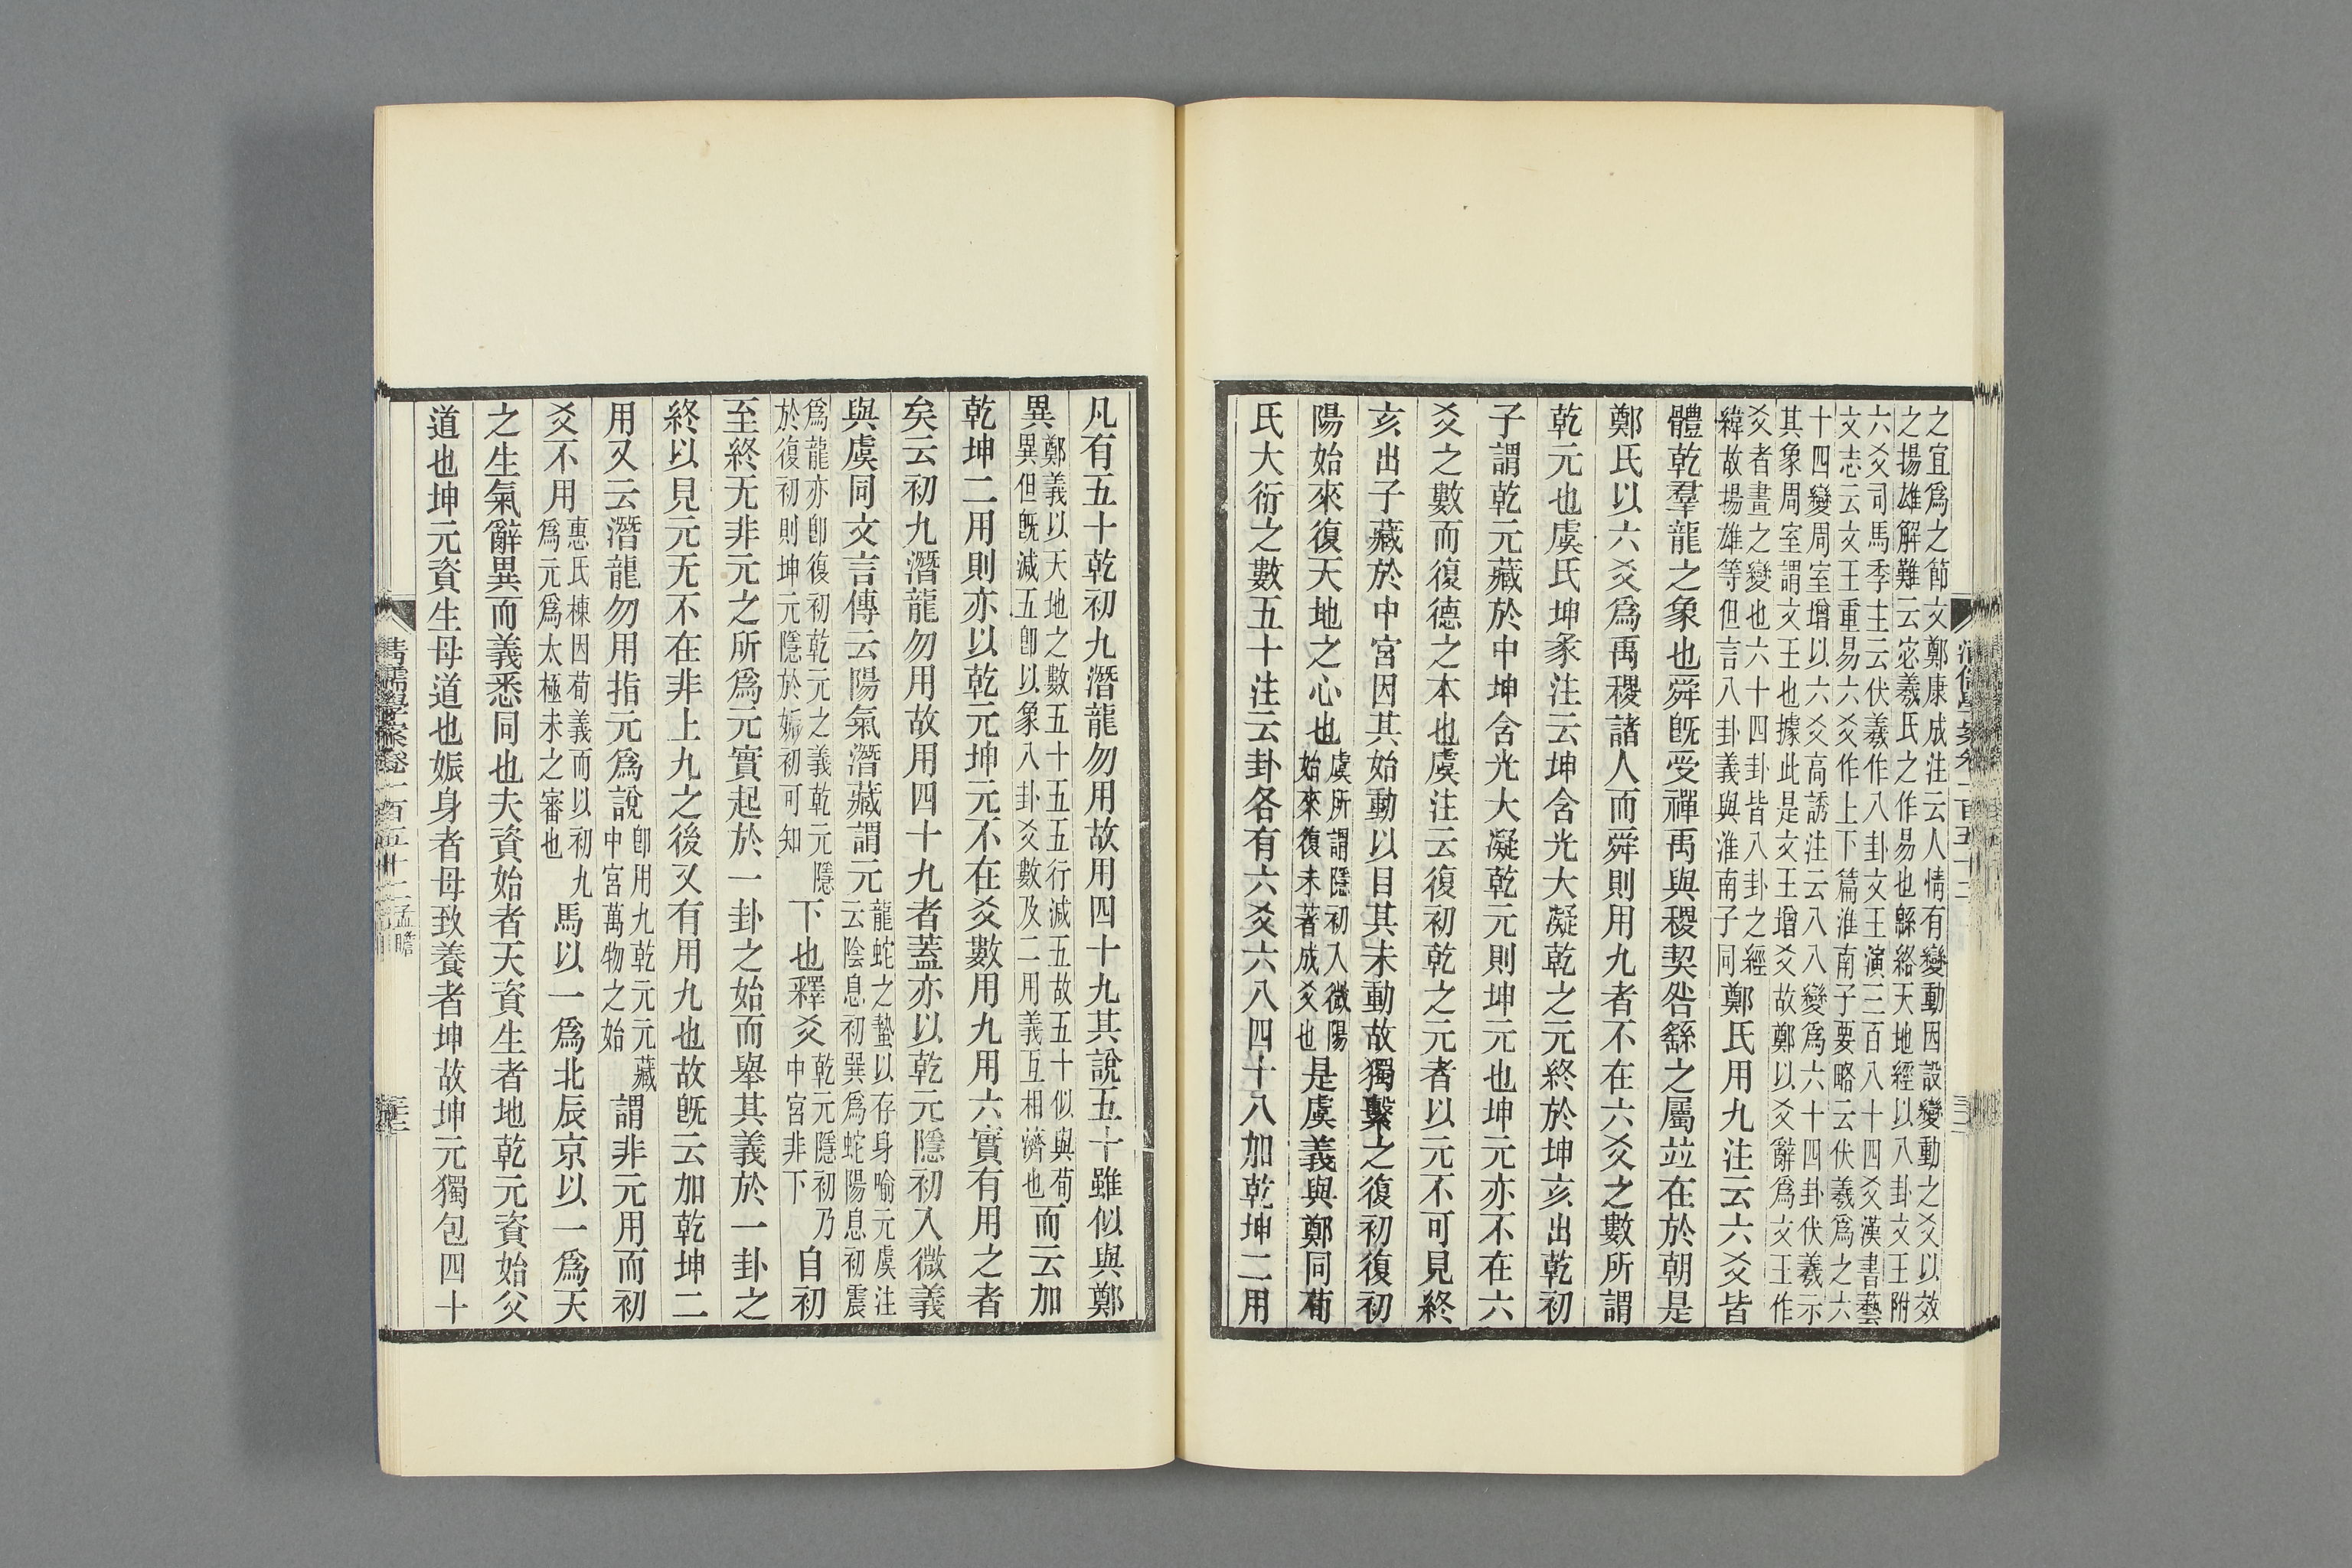 之宜爲之節文鄭康成注云人情有變動因設變動之爻以效
之揚雄解難云宓羲氏之作易也緜絡天地經以八卦文王附
六爻司馬季主云伏羲作八卦文王演三百八十四爻漢書藝
文志云文王重易六爻作上下篇淮南子要略云伏羲爲之六
十四變周室增以六爻高誘注云八八變爲六十四卦伏羲示
其象周室謂文王也據此是文王增爻故鄭以爻辭爲文王作
爻者畫之變也六十四卦皆八卦之經
緯故揚雄等但言八卦義與淮南子同鄭氏用九注云六爻皆
體乾羣龍之象也舜旣受禪禹與稷契咎繇之屬竝在於朝是
鄭氏以六爻爲禹稷諸人而舜則用九者不在六爻之數所謂
乾元也虞氏坤彖注云坤含光大凝乾之元終於坤亥出乾初
子謂乾元藏於中坤含光大凝乾元則坤元也坤元亦不在六
爻之數而復德之本也虞注云復初乾之元者以元不可見終
亥出子藏於中宮因其始動以目其未動故獨繫之復初復初
陽始來復天地之心也虞所謂隱初入微陽始來復未著成爻也是虞義與鄭同荀
氏大衍之數五十注云卦各有六爻六八四十八加乾坤二用
凡有五十乾初九潛龍勿用故用四十九其說五十雖似與鄭
異鄭義以天地之數五十五五行減五故五十似與荀異但旣減五卽以象八卦爻數及二用義互相濟也而云加
乾坤二用則亦以乾元坤元不在爻數用九用六實有用之者
矣云初九潛龍勿用故用四十九者蓋亦以乾元隱初入微義
與虞同文言傳云陽氣潛藏謂元龍蛇之蟄以存身喻元虞注云陰息初巽爲蛇陽息初震
爲龍亦卽復初乾元之義乾元隱於復初則坤元隱於姤初可知下也釋爻乾元隱初乃中宮非下自初
至終无非元之所爲元實起於一卦之始而舉其義於一卦之
終以見元无不在非上九之後又有用九也故旣云加乾坤二
用又云潛龍勿用指元爲說卽用九乾元元藏中宮萬物之始謂非元用而初
爻不用惠氏棟因荀義而以初九爲元爲太極未之審也馬以一爲北辰京以一爲天
之生氣辭異而義悉同也夫資始者天資生者地乾元資始父
道也坤元資生母道也娠身者母致養者坤故坤元獨包四十
清儒學案卷一百五十二 孟瞻